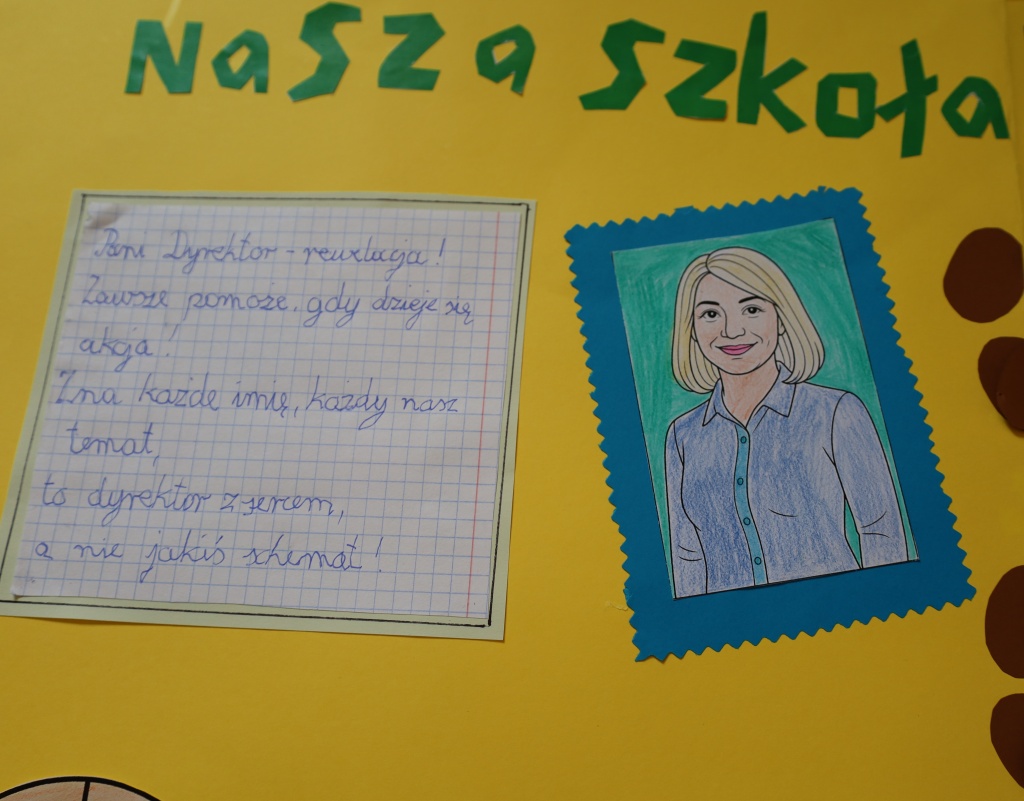 Nasza szkoła
Pani Dyrektor - rewelacja!
Zawsze pomoże, gdy dzieje się
akcja!
Zna każde imię, każdy nasz
temat,
to dyrektor z sercem,
a nie jakiś schemat!